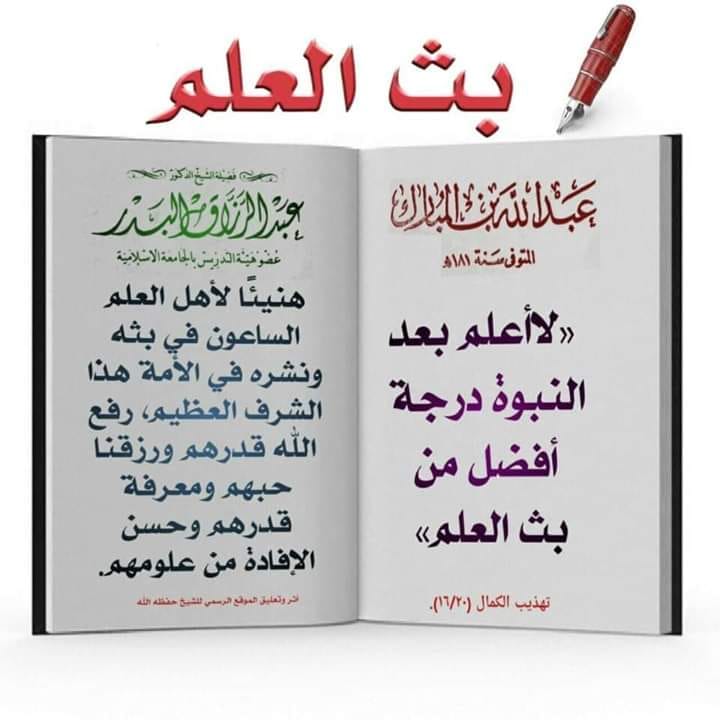 بث العلم
عبد الله بن المبارك
المتوفى سنة ١٨١هـ
«لاأعلم بعد
النبوة درجة
أفضل من
بث العلم»
تهذيب الكمال (١٦/٢٠).
فضيلة الشيخ الدكتور
عبد الرزاق البدر
عضو هيئة التدريس بالجامعة الإسلامية
هنيئًا لأهل العلم
الساعون في بثه
ونشره في الأمة هذا
الشرف العظيم، رفع
الله قدرهم ورزقنا
حبهم ومعرفة
قدرهم وحسن
الإفادة من علومهم.
أثر وتعليق الموقع الرسمي للشيخ حفظه الله